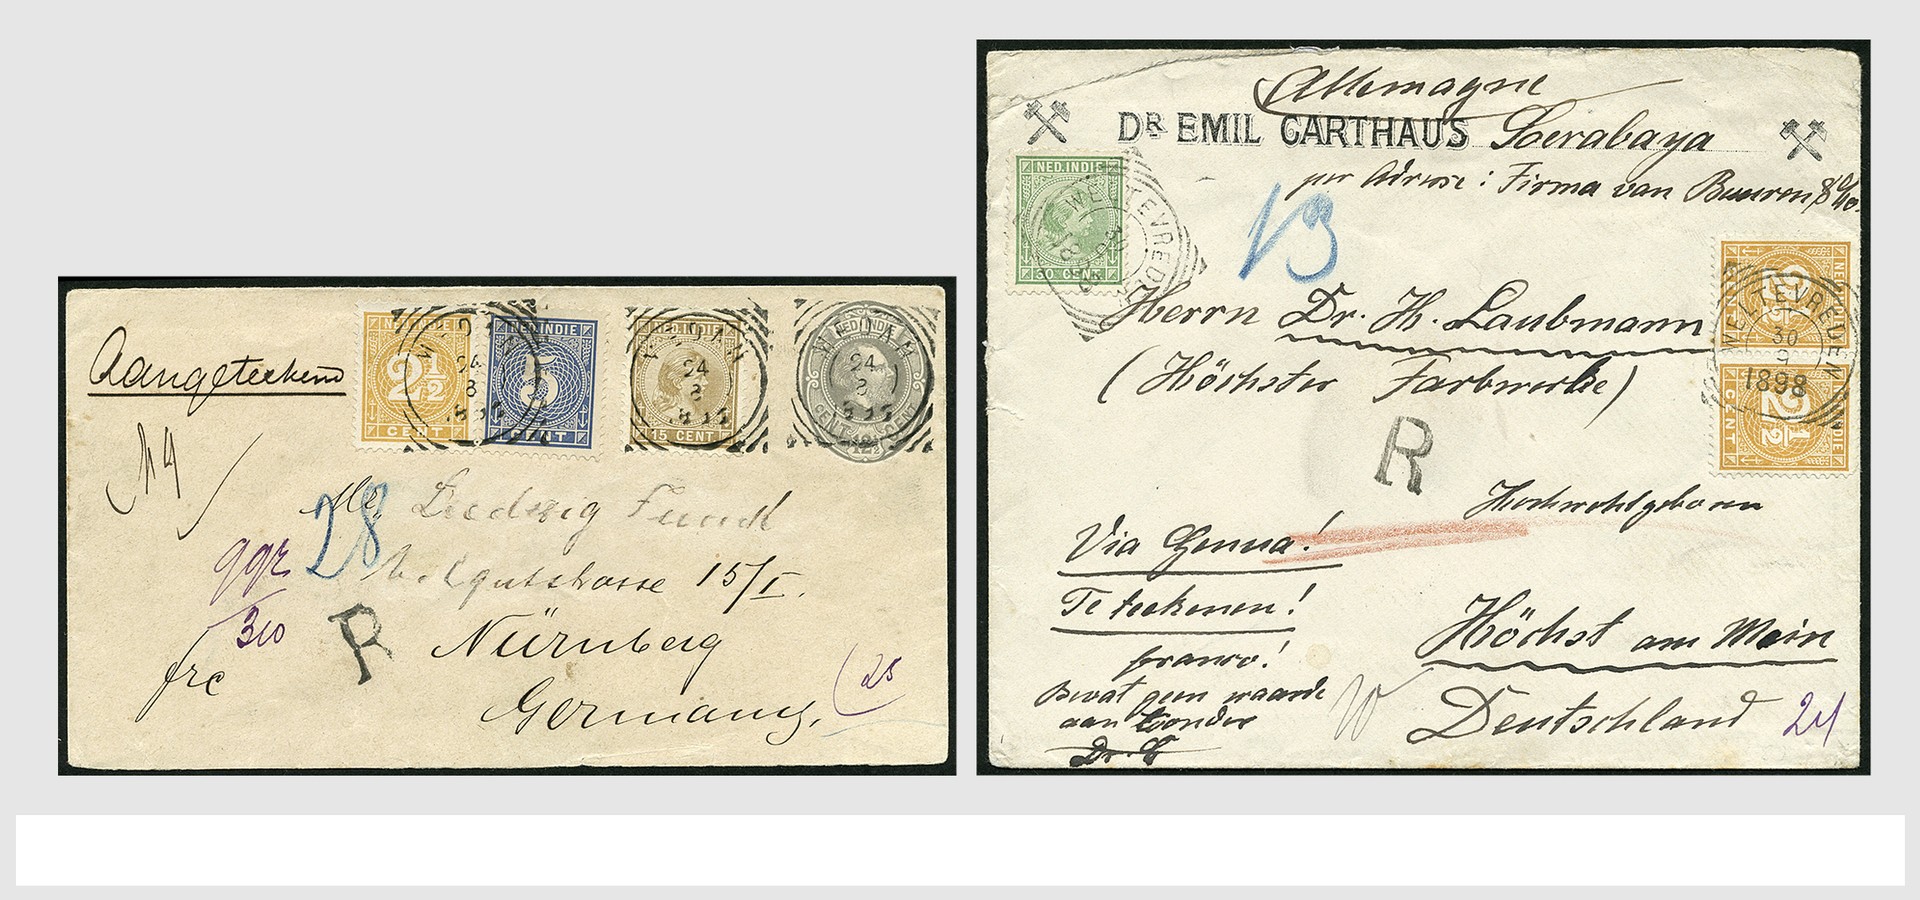 Aangeteekend
NED. INDIE
2½
CENT
NED. INDIE
5
CENT
NED. INDIE
15 CENT
NED INDIE
12½
MEDAN
24
8
MEDAN
24
8
MEDAN
24
8
19
28
Ludwig Funck
15/I.
Nürnberg
Germany.
R
310
frc
25
Allemagne
DR EMIL CARTHAUS Soerabaya
per Adresse: Firma van Buuren & Co.
NED. INDIE
30 CENT
WELTEVREDEN
13
Herrn Dr. H. Laubmann
(Höchster Farbwerke)
NED. INDIE
2½
CENT
NED. INDIE
2½
CENT
WELTEVREDEN
30
9
1898
R
Hochwohlgeboren
Via Genua!
Te teekenen!
franco!
Bevat geen waarde
aan
Dr. C
Höchst am Main
Deutschland
24